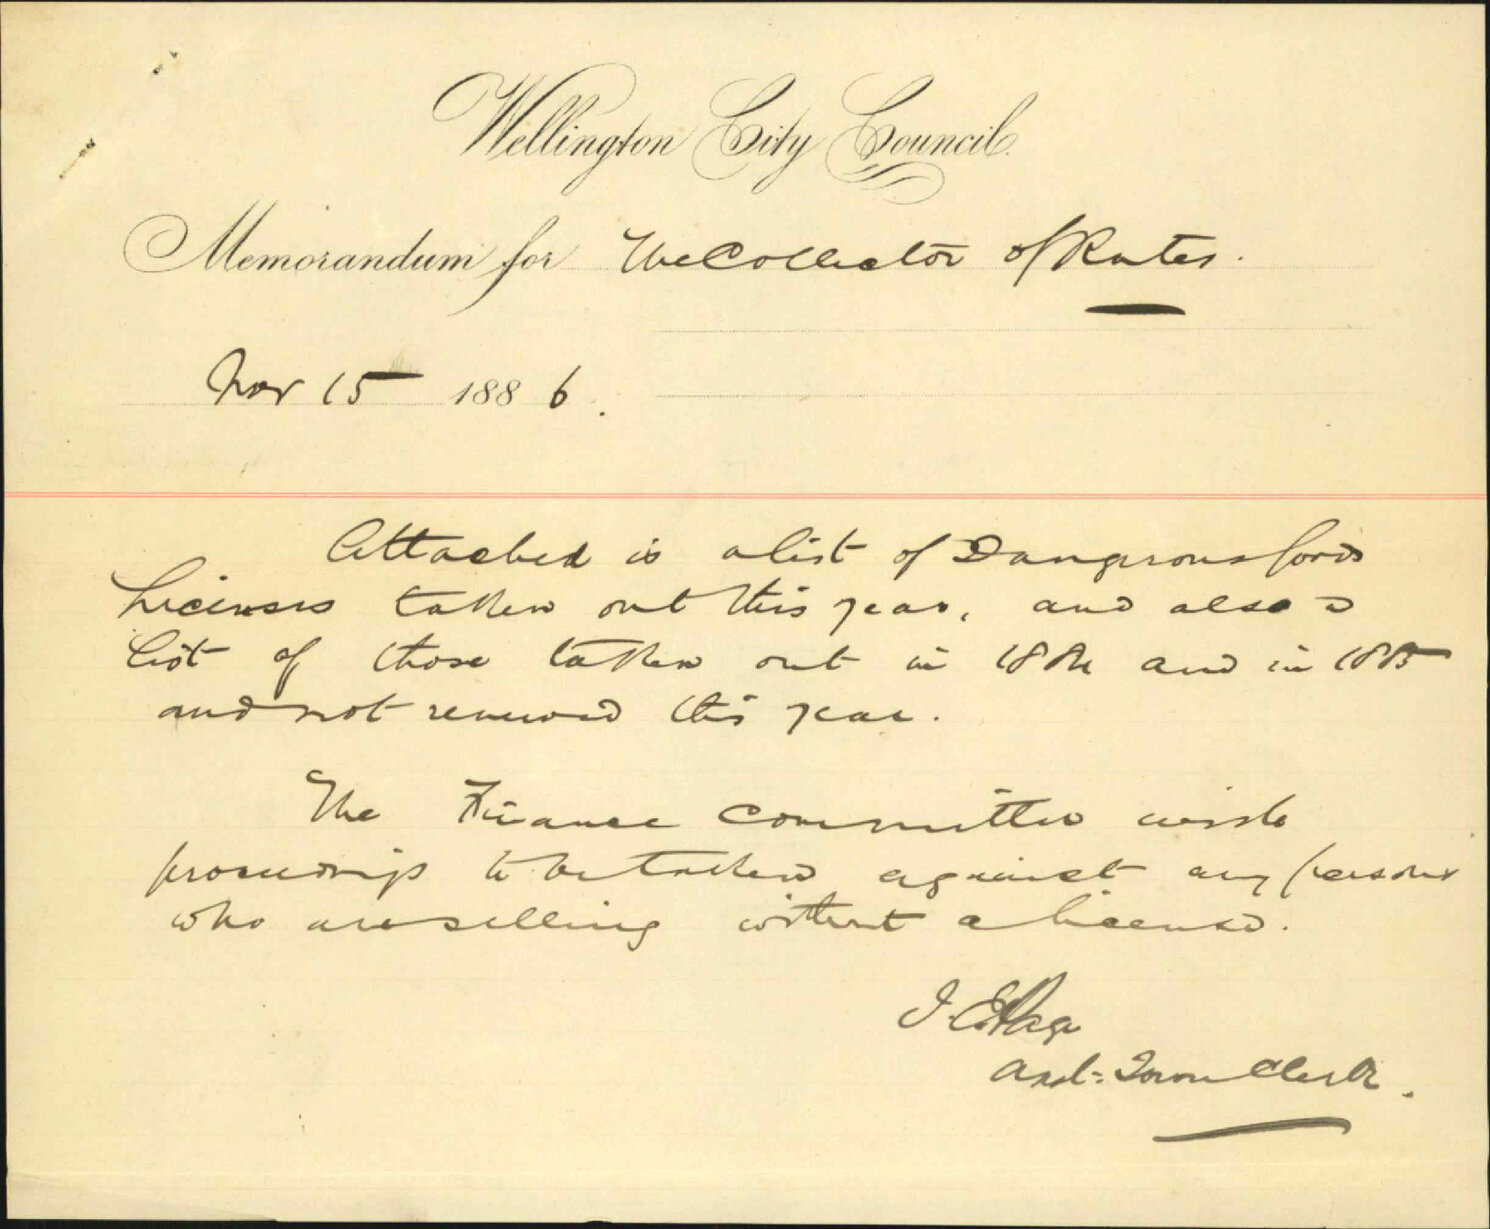 Wellington City Council.
Memorandum for The Collector of Rates.
Nov 15 1886.
Attached is a list of Dangerous Goods
Licenses taken out this year, and also a
list of those taken out in 1884 and in 1885
and not renewed this year.
The Finance Committee wish
proceedings to be taken against any persons
who are selling without a license.
J. E. Page
Asst= Town Clerk.